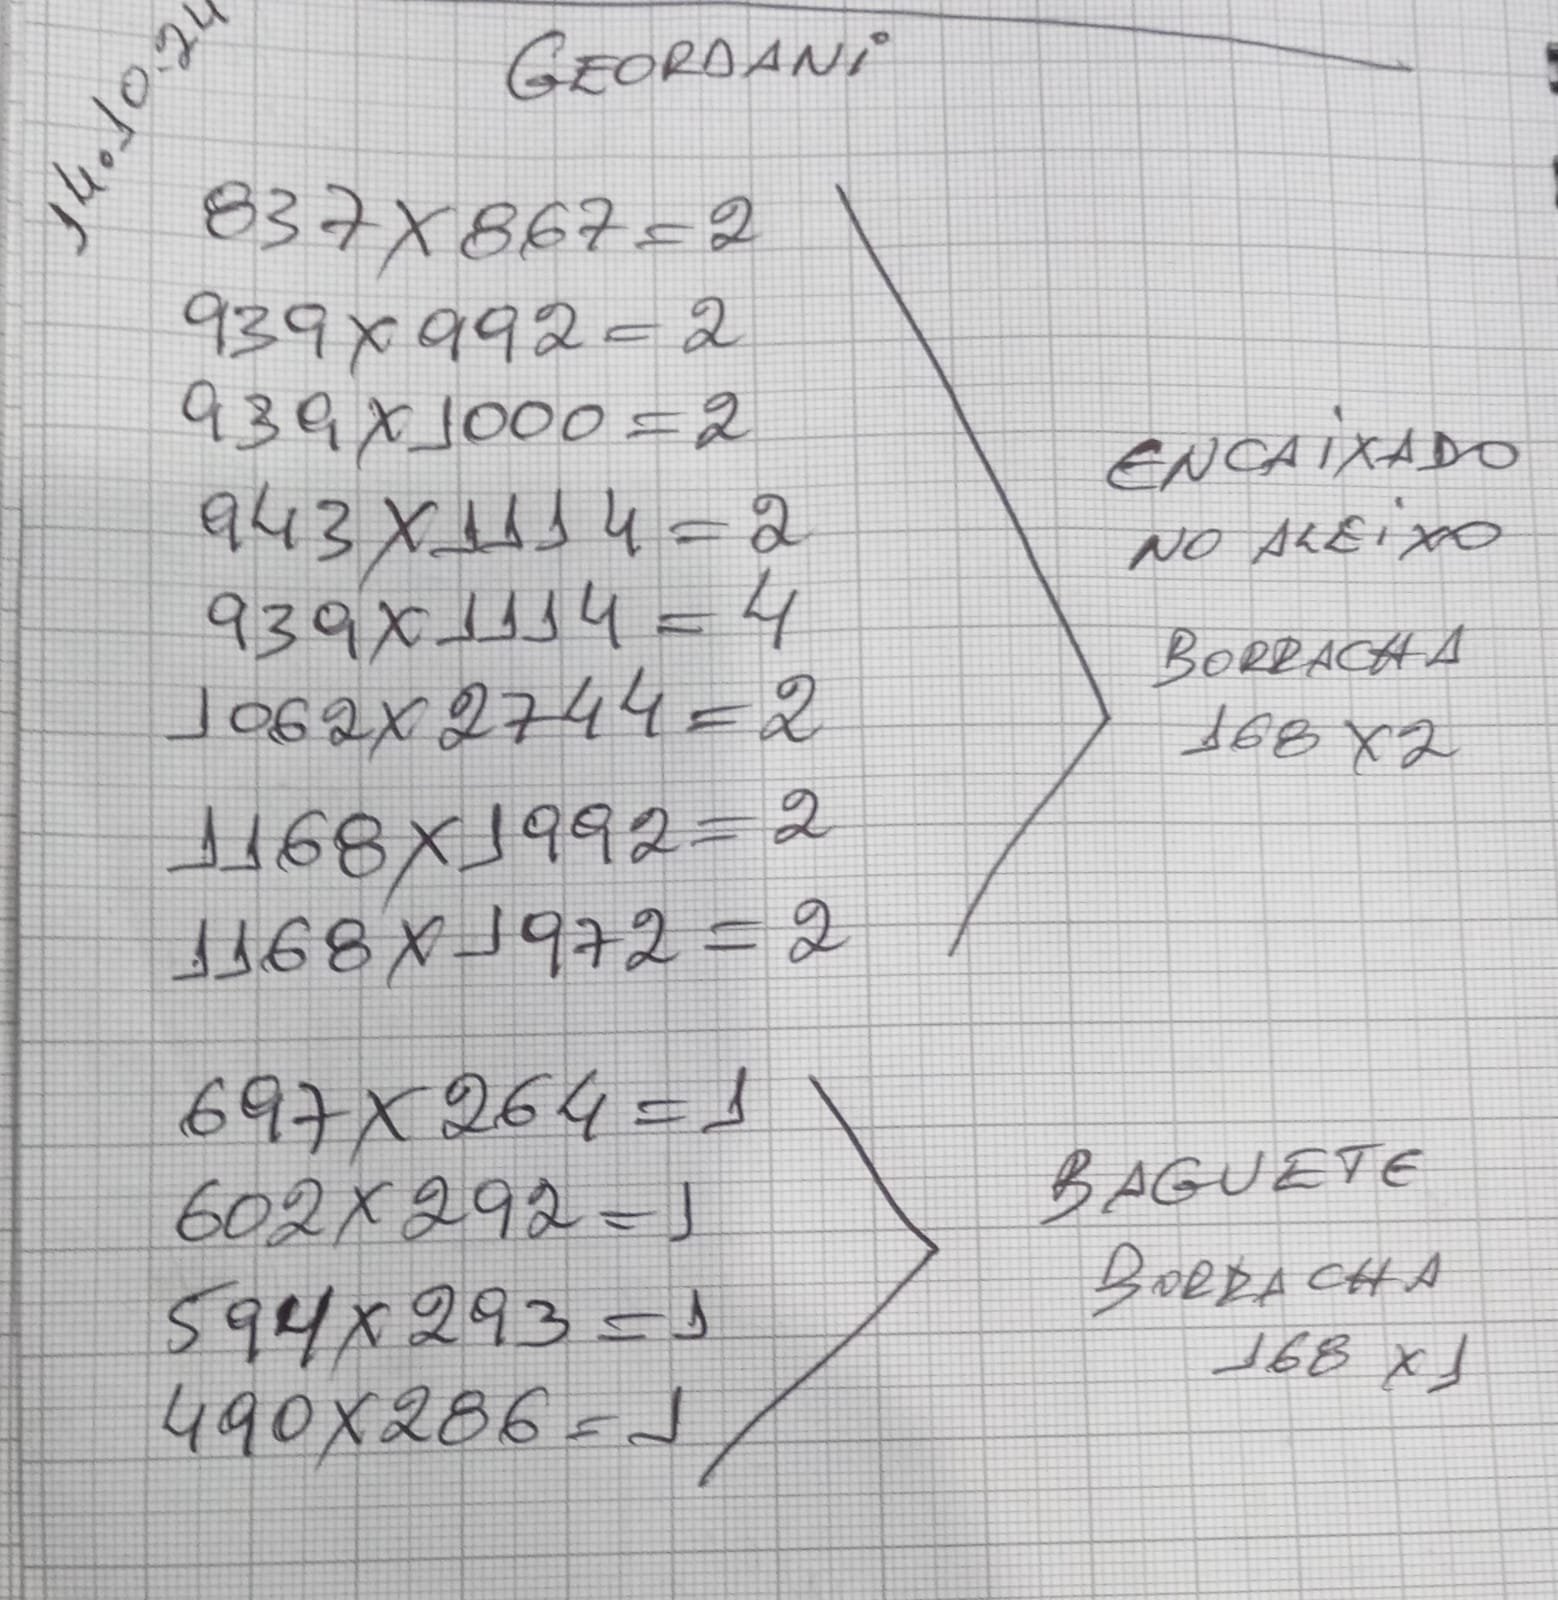 14.10.24
GEORDANi
837x867=2
939x992=2
939x1000=2
943x1114=2
939x1114=4
1062x2744=2
1168x1992=2
1168x1972=2
ENCAiXADO
NO ALEiXO
BORRACHA
168 x2
697x264=1
602x292=1
594x293=1
490x286=1
BAGUETE
BORRACHA
168 x1